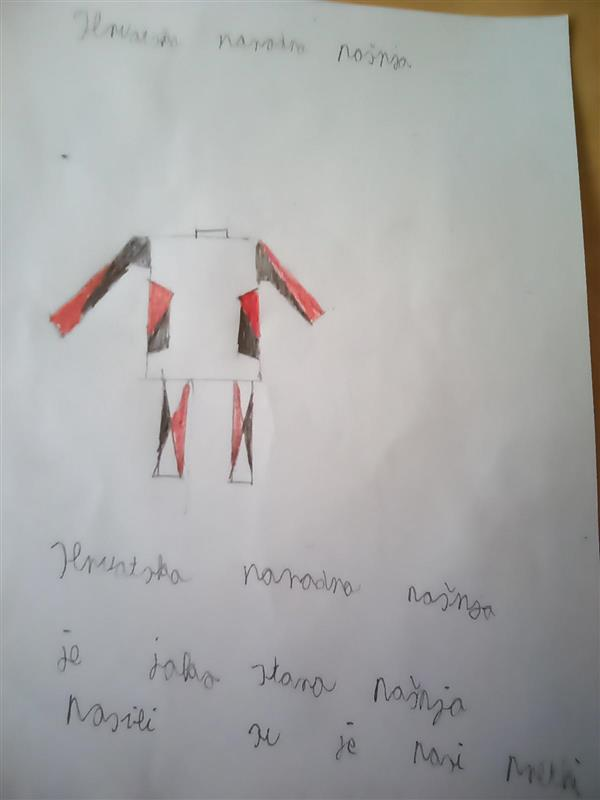 Hrvatska narodna nošnja
Hrvatska narodna nošnja
je jako stara nošnja
Nosili su je nasi